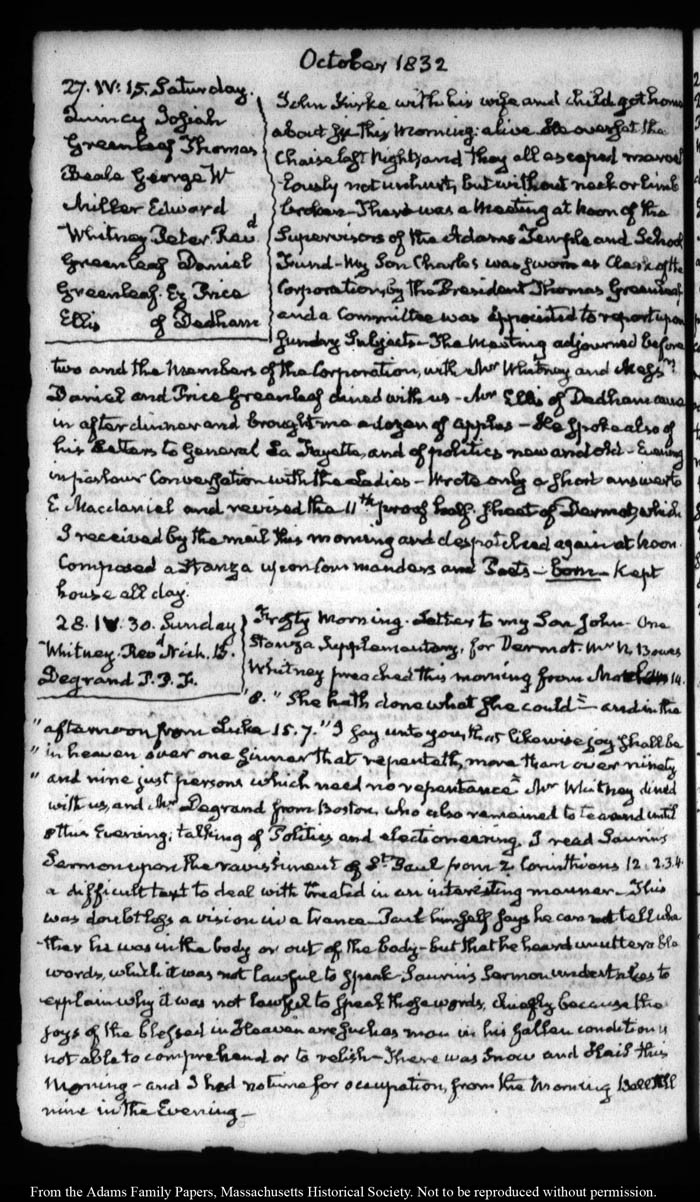 October 1832
27. IV: 15. Saturday.
Quincy Josiah
Greenleaf Thomas
Beale George W
Miller Edward
Whitney Peter. Revd
Greenleaf Daniel
Greenleaf. Ez Price
Ellis of Dedham
John Kirke with his wife and child got home
about six this morning: alive. He overset the
Chaise last Night, and they all escaped marvel
lously not unhurt, but without neck or limb
broken. There was a Meeting at Noon of the
Supervisors of the Adams Temple and School
Fund. My Son Charles was sworn as Clerk of the
Corporation, by the President Thomas Greenleaf
and a Committee was appointed to report upon
sundry Subjects. The Meeting adjourned before
two and the Members of the Corporation, with Mr Whitney and Messrs
Daniel and Price Greenleaf dined with us. Mr Ellis of Dedham came
in after dinner and brought me a dozen of apples. He spoke also of
his Letters to General La Fayette, and of politics new and old. Evening
in parlour Conversation with the Ladies. Wrote only a short answer to
E. Macdaniel and revised the 11th proof half-sheet of Dermot, which
I received by the mail this morning and despatched again at Noon.
Composed a Stanza upon Commanders and Poets. Kept
house all day.
28. IV. 30. Sunday
Whitney. Revd Nich. B.
Degrand P. P. F.
Frosty Morning. Letter to my Son John. One
Stanza Supplementary, for Dermot. Mr N. Bowes
Whitney preached this morning from Mark 14.
"8. "She hath done what she could" and in the
"afternoon from Luke 15. 7. "I say unto you, that likewise joy shall be
"in heaven over one sinner that repenteth, more than over ninety
"and nine just persons which need no repentance" Mr Whitney dined
with us, and Mr Degrand from Boston, who also remained to tea and until
this Evening; talking of Politics and electioneering. I read Saurin's
Sermon upon the ravishment of St Paul from 2 Corinthians 12. 2.3.4.
a difficult text to deal with treated in an interesting manner. This
was doubtless a vision in a trance. Paul himself says he can not tell whe
ther he was in the body or out of the body. but that he heard unutterable
words, which it was not lawful to speak. Saurin's Sermon undertakes to
explain why it was not lawful to speak those words, chiefly because the
joys of the blessed in Heaven are such as man in his fallen condition is
not able to comprehend or to relish. There was Snow and Hail this
Morning - and I had no time for occupation, from the Morning Bell till
nine in the Evening.
From the Adams Family Papers, Massachusetts Historical Society. Not to be reproduced without permission.